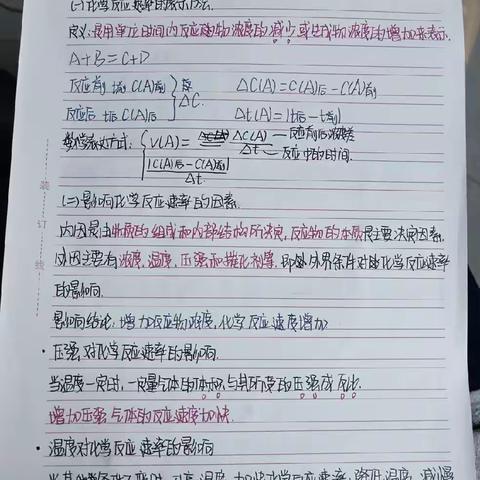 (一)化学反应速率的表示方法.
定义:是用单位时间内反应物物浓度的减少或生成物浓度的增加来表示.
A+B=C+D
反应前 t前 C(A)前 ΔC(A)=C(A)后-C(A)前
反应后 t后 C(A)后 ΔC. Δt(A)=|t后-t前|
数学表达方式: V(A)= ΔC(A)/Δt —反应前后浓度差 —反应中的时间.
|C(A)后-C(A)前|/Δt
(二)影响化学反应速率的因素.
内因是由物质的组成和内部结构所决定,反应物的本质是主要决定因素.
外因主要有浓度,温度,压强和催化剂等.即外界条件对化学反应速率
的影响.
影响结论:增加反应物浓度,化学反应速度增加
·压强对化学反应速率的影响.
当温度一定时,一定量气体的体积与其所受的压强成反比.
增加压强气体的反应速度加快.
·温度对化学反应速率的影响
装
订
线